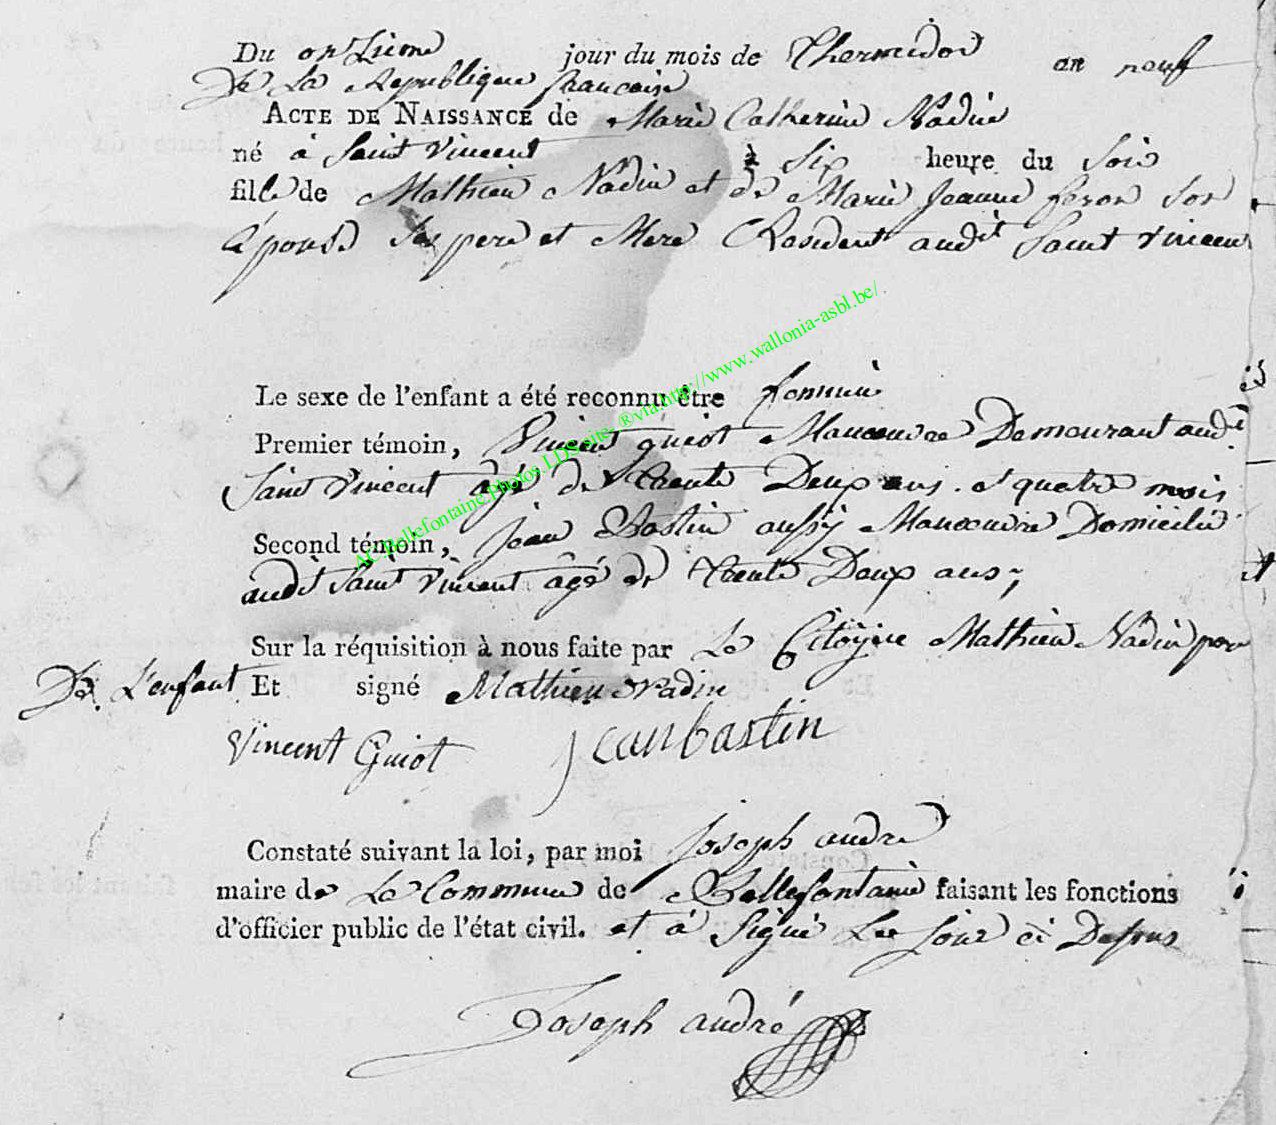 Du onzieme jour du mois de Thermidor an neuf
De La Republique francaise
ACTE DE NAISSANCE de Marie Catherine Nadin
né à Saint Vincent à Six heure du Soir
fille de Mathieu Nadin et de Marie Jeanne feron Son
épouse Ses pere et Mere Residents audit Saint Vincent
Le sexe de l'enfant a été reconnu être feminin
Premier témoin, Vincent guiot Manoeuvre Demeurant audit
Saint Vincent âgé de Trente Deux ans et quatre mois
Second témoin, Jean Bastin aussy Manoeuvre Domicilié
audit Saint Vincent âgé de Trente Deux ans;
Sur la réquisition à nous faite par Le Citoyen Mathieu Nadin pere
De L'enfant Et signé Mathieu Nadin
Vincent Guiot Jean bastin
Constaté suivant la loi, par moi Joseph andre
maire de La Commune de Bellefontaine faisant les fonctions
d'officier public de l'état civil. et à Signé Les Jour ci Desus
Joseph andré
AC Bellefontaine.Photos.LDS.site ®via http://www.wallonia-asbl.be/